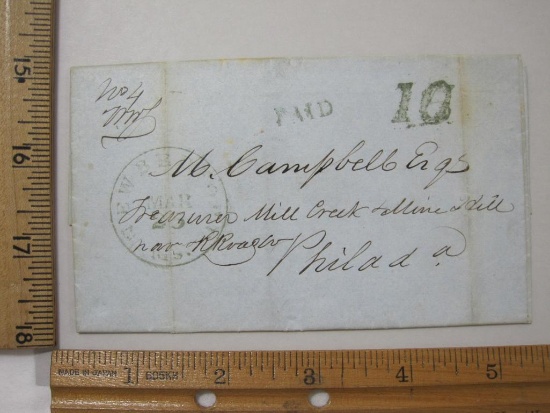 No 4
PAID
10
M. Campbell Esqr
MAR
Treasurer Mill Creek & Mine Hill
nav & RRoad Co
Philada
MADE IN JAPAN
1 2 3 4 5
15
16
17
18